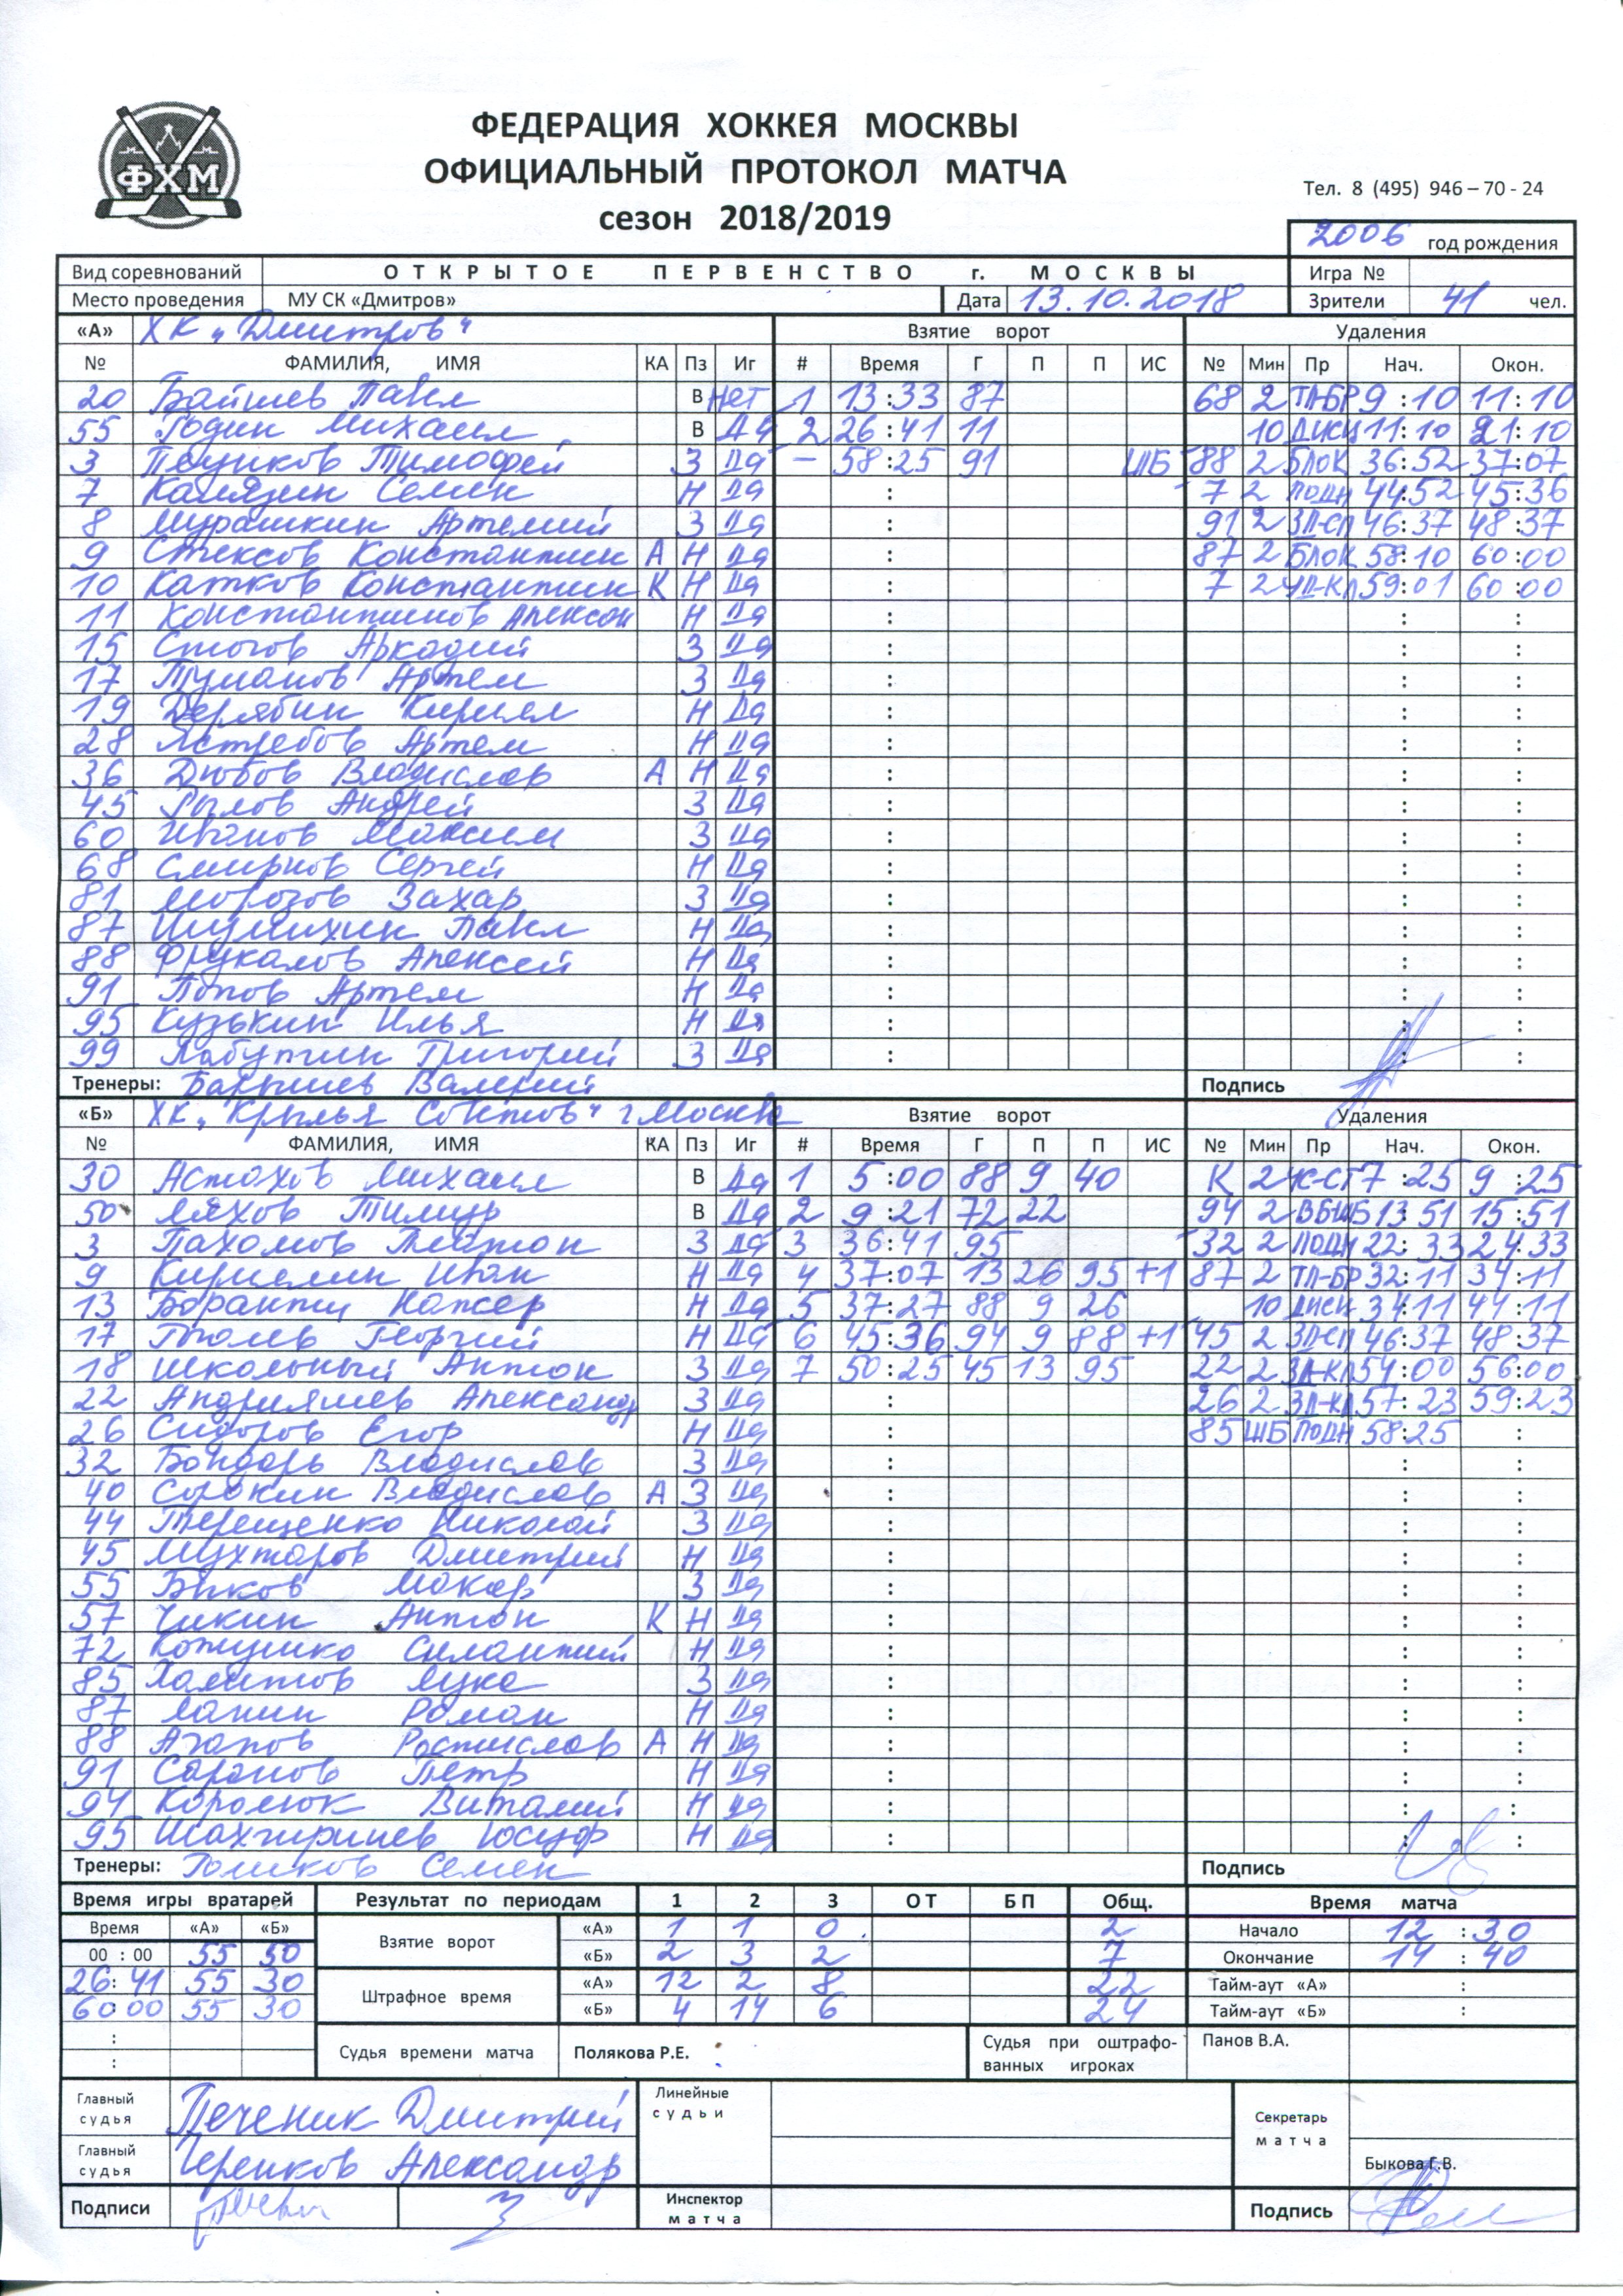 ФХМ
ФЕДЕРАЦИЯ ХОККЕЯ МОСКВЫ
ОФИЦИАЛЬНЫЙ ПРОТОКОЛ МАТЧА
Тел. 8 (495) 946 – 70 - 24
сезон 2018/2019
2006 год рождения
Вид соревнований ОТКРЫТОЕ ПЕРВЕНСТВО г. МОСКВЫ Игра №
Место проведения МУ СК «Дмитров» Дата 13.10.2018 Зрители 41 чел.
«А» ХК "Дмитров" Взятие ворот Удаления
№ ФАМИЛИЯ, ИМЯ КА Пз Иг # Время Г П П ИС № Мин Пр Нач. Окон.
20 Павел В Нет 1 13:33 87 68 2 ТЛ-БР 9:10 11:10
55 Родин Михаил В Да 2 26:41 11 10 ДИСЦ 11:10 21:10
3 Тимофей З Да – 58:25 91 ШБ 88 2 БЛОК 36:52 37:07
7 Семен Н Да : 7 2 ПОДН 44:52 45:36
8 Мурашкин Артемий З Да : 91 2 ЗД-СП 46:37 48:37
9 Константин А Н Да : 87 2 БЛОК 58:10 60:00
10 Катков Константин К Н Да : 7 2 УД-КЛ 59:01 60:00
11 Константинов Алексан Н Да : : :
15 Стогов Аркадий З Да : : :
17 Туманов Артем З Да : : :
19 Дерябин Кирилл Н Да : : :
28 Ястребов Артем Н Да : : :
36 Дюбов Владислав А Н Да : : :
45 Рылов Андрей З Да : : :
60 Иванов Максим З Да : : :
68 Смирнов Сергей Н Да : : :
81 Морозов Захар З Да : : :
87 Шумихин Павел Н Да : : :
88 Фрукалов Алексей Н Да : : :
91 Попов Артем Н Да : : :
95 Кузькин Илья Н Да : : :
99 Лабутин Григорий З Да : : :
Тренеры: Валерий Подпись
«Б» ХК "Крылья Советов" г Москва Взятие ворот Удаления
№ ФАМИЛИЯ, ИМЯ КА Пз Иг # Время Г П П ИС № Мин Пр Нач. Окон.
30 Астахов Михаил В Да 1 5:00 88 9 40 К 2 7:25 9:25
50 Ляхов Тимур В Да 2 9:21 72 22 94 2 ВБШБ 13:51 15:51
3 Пахомов Платон З Да 3 36:41 95 32 2 ПОДН 22:33 24:33
9 Кириллин Иван Н Да 4 37:07 13 26 95 +1 87 2 ТЛ-БР 32:11 34:11
13 Н Да 5 37:27 88 9 26 10 ДИСЦ 34:11 44:11
17 Георгий Н Да 6 45:36 94 9 88 +1 45 2 ЗД-СП 46:37 48:37
18 Школьный Антон З Да 7 50:25 45 13 95 22 2 ЗД-КЛ 54:00 56:00
22 Андрияшев Александр З Да : 26 2 ЗД-КЛ 57:23 59:23
26 Сидоров Егор Н Да : 85 ШБ ПОДН 58:25 :
32 Бондарь Владислав З Да : : :
40 Сорокин Владислав А З Да : : :
44 Терещенко Николай З Да : : :
45 Мухтаров Дмитрий Н Да : : :
55 Быков Макар З Да : : :
57 Чикин Антон К Н Да : : :
72 Кожушко Силантий Н Да : : :
85 Халитов Лука З Да : : :
87 Лапин Роман Н Да : : :
88 Агапов Ростислав А Н Да : : :
91 Саранов Петр Н Да : : :
94 Королюк Виталий Н Да : : :
95 Шахгириев Юсуф Н Да : : :
Тренеры: Семен Подпись
Время игры вратарей Результат по периодам 1 2 3 ОТ БП Общ. Время матча
Время «А» «Б» Взятие ворот «А» 1 1 0 2 Начало 12:30
00 : 00 55 50 «Б» 2 3 2 7 Окончание 14:40
26:41 55 30 Штрафное время «А» 12 2 8 22 Тайм-аут «А» :
60:00 55 30 «Б» 4 14 6 24 Тайм-аут «Б» :
:
:
Судья времени матча Полякова Р.Е. Судья при оштрафо-
ванных игроках Панов В.А.
Главный судья Печеник Дмитрий Линейные судьи Секретарь матча
Главный судья Черенков Александр Быкова Г.В.
Подписи Инспектор матча Подпись